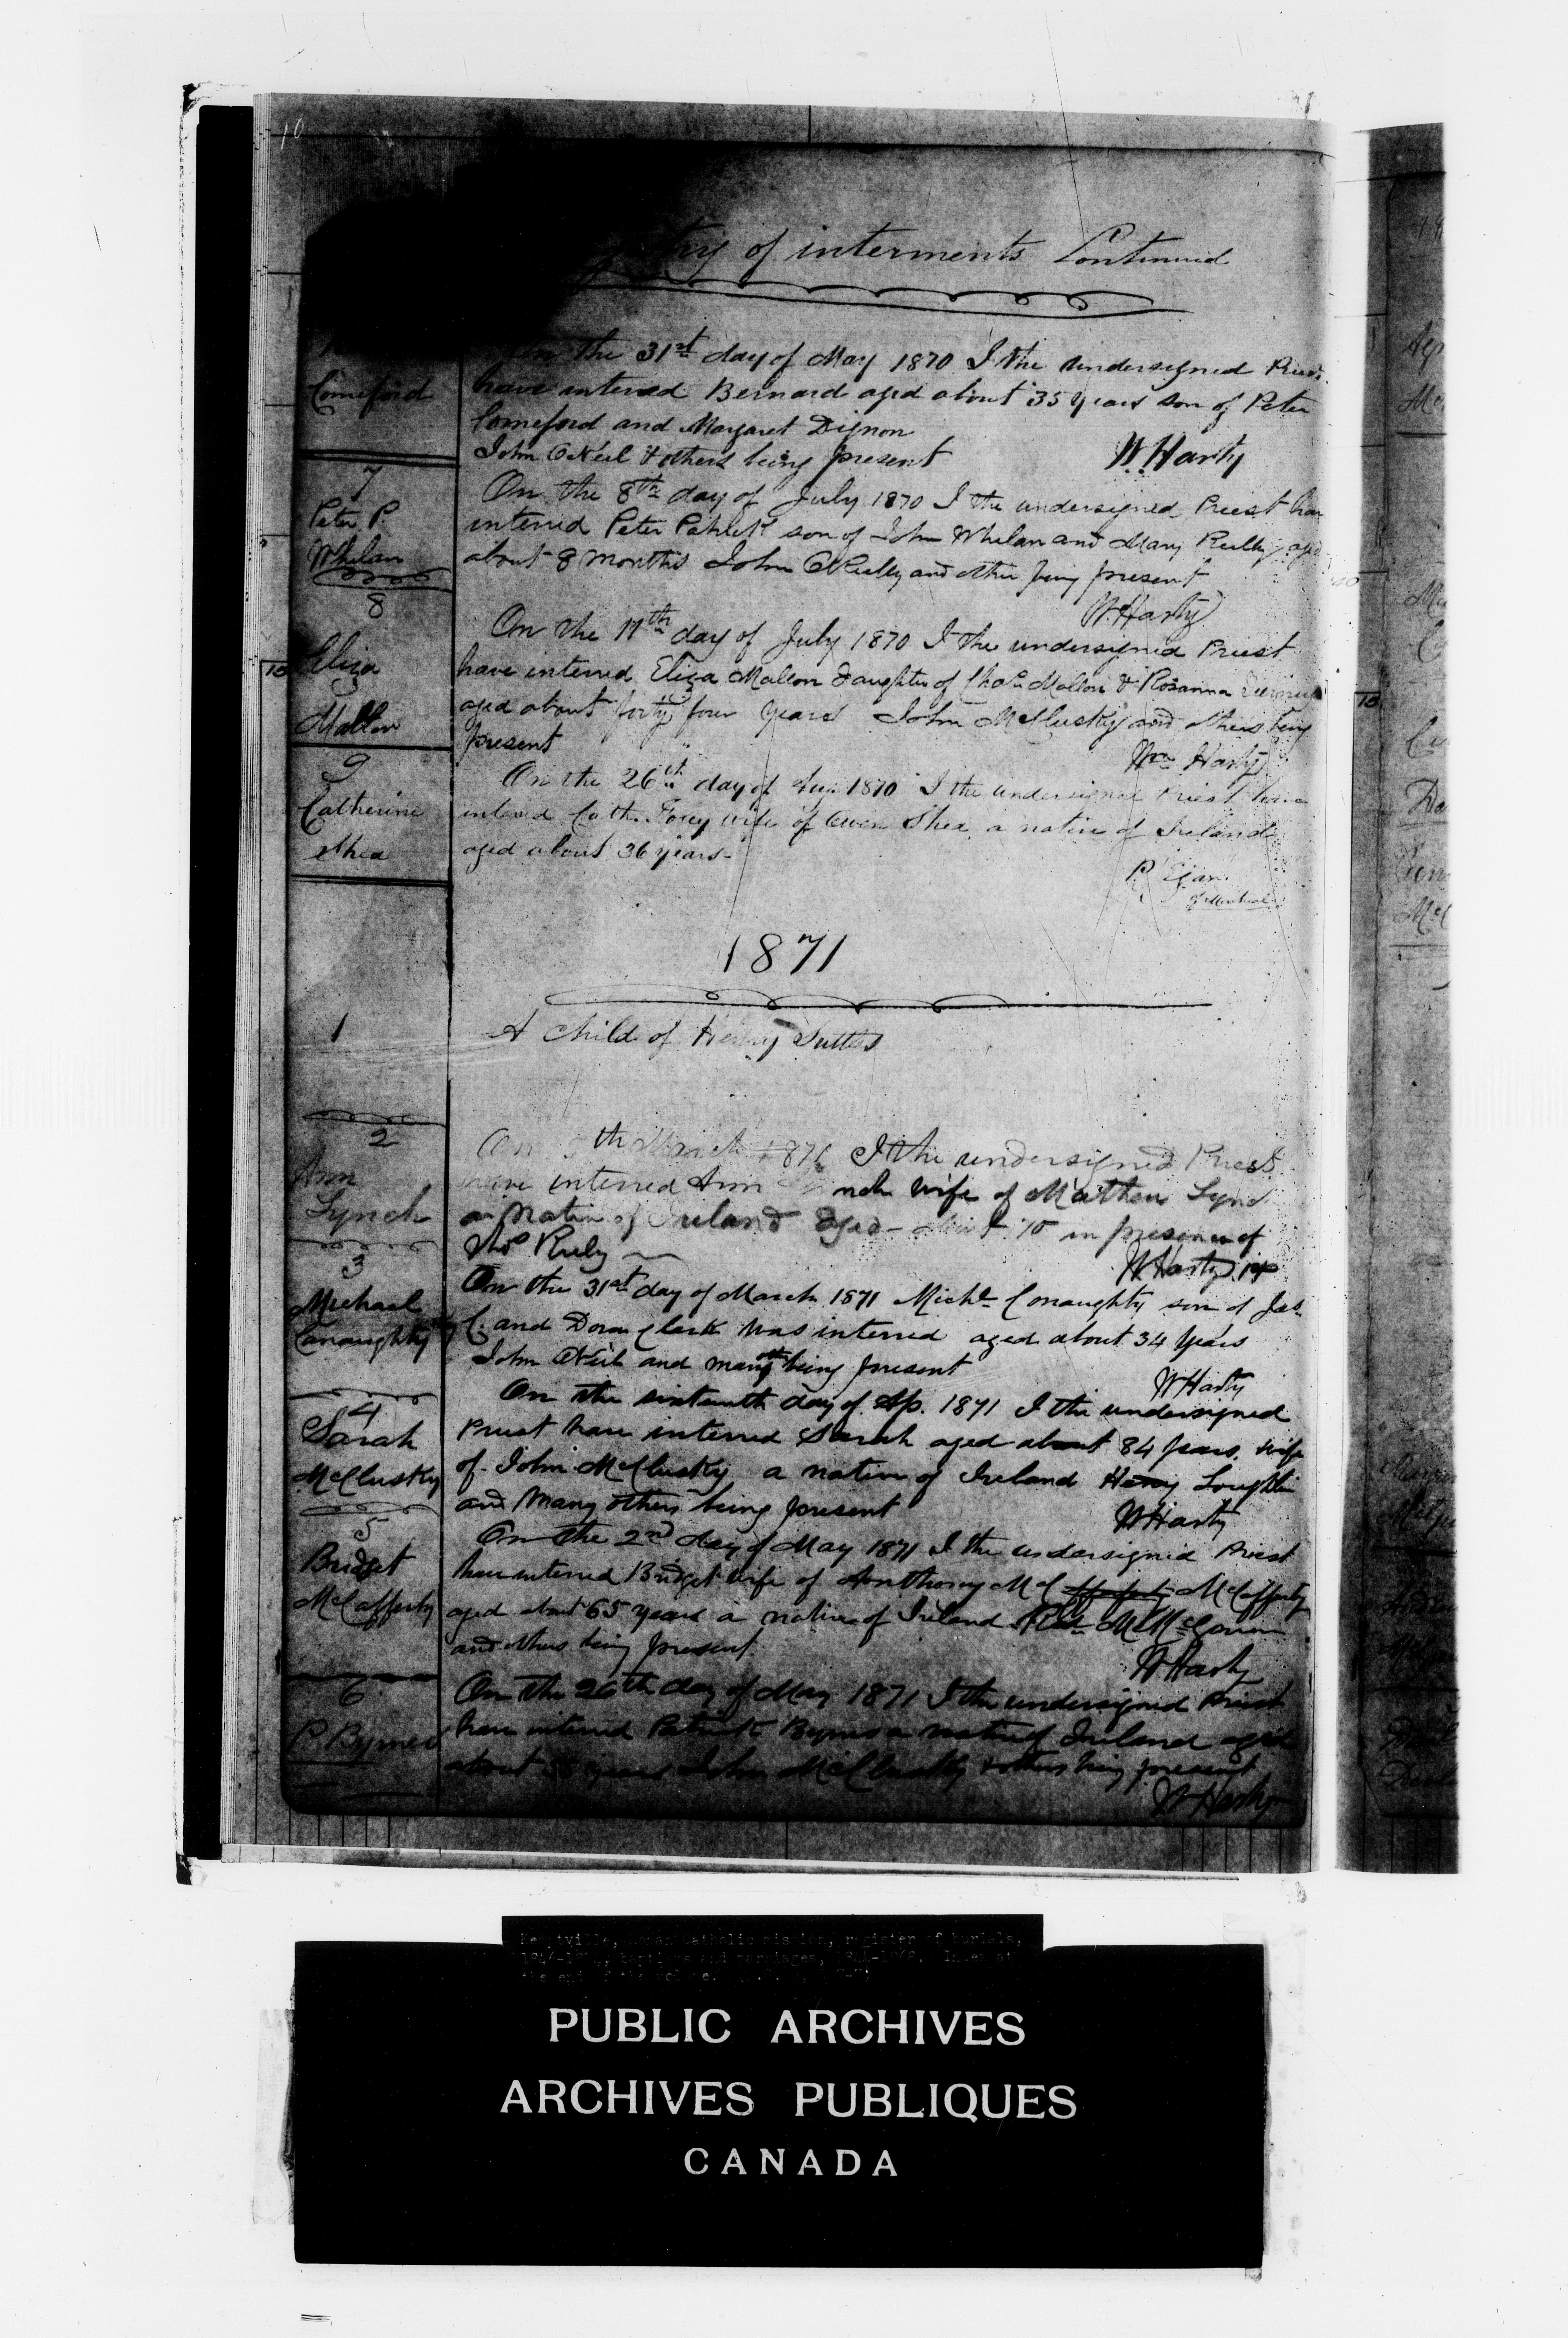 10
try of interments Continued
On the 31st day of May 1870 I the undersigned Priest
Comeford
have intered Bernard aged about 35 years son of Peter
Comeford and Margaret Dignon
John O'Neil & others being present
W. Harty
7
Peter P.
Whelan
On the 8th day of July 1870 I the undersigned Priest have
interred Peter Patrick son of John Whelan and Mary Reilly aged
about 8 months John O'Reilly and other being present
W. Harty
8
Eliza
Mallon
On the 11th day of July 1870 I the undersigned Priest
have interred Eliza Mallon daughter of Mallon & Rosanna
aged about forty four years John McClusky and others being
present
Wm Harty
9
Catherine
Shea
On the 26th day of 1870 I the undersigned Priest have
intered Cath. wife of Owen Shea a native of Ireland
aged about 36 years
P. Egan
of Montreal
1871
1
A Child of Henry
2
Ann
Lynch
On th March 1871 I the undersigned Priest
have interred Ann wife of Mathew Lynch
a Native of Ireland aged about in presence of
Thos
W Harty
3
Michael
Conaughty
On the 31st day of March 1871 Michl Conaughty son of Jas
C. and Dora Clark was interred aged about 34 years
John O'Neil and many oth being present
W Harty
4
Sarah
McClusky
On the sixteenth day of Ap. 1871 I the undersigned
Priest have interred Sarah aged about 84 years, wife
of John McClusky a native of Ireland Henry Loughlin
and many others being present
W Harty
5
Bridget
McCafferty
On the 2nd day of May 1871 I the undersigned Priest
have interred Bridget wife of Anthony Mc McCafferty
aged about 65 years a native of Ireland McGovern
and others being present
W Harty
6
P Byrnes
On the 26th day of May 1871 I the undersigned Priest
have interred Patrick Byrnes a native of Ireland aged
about years John McClusky & others being present
W Harty
register of burials,
PUBLIC ARCHIVES
ARCHIVES PUBLIQUES
CANADA